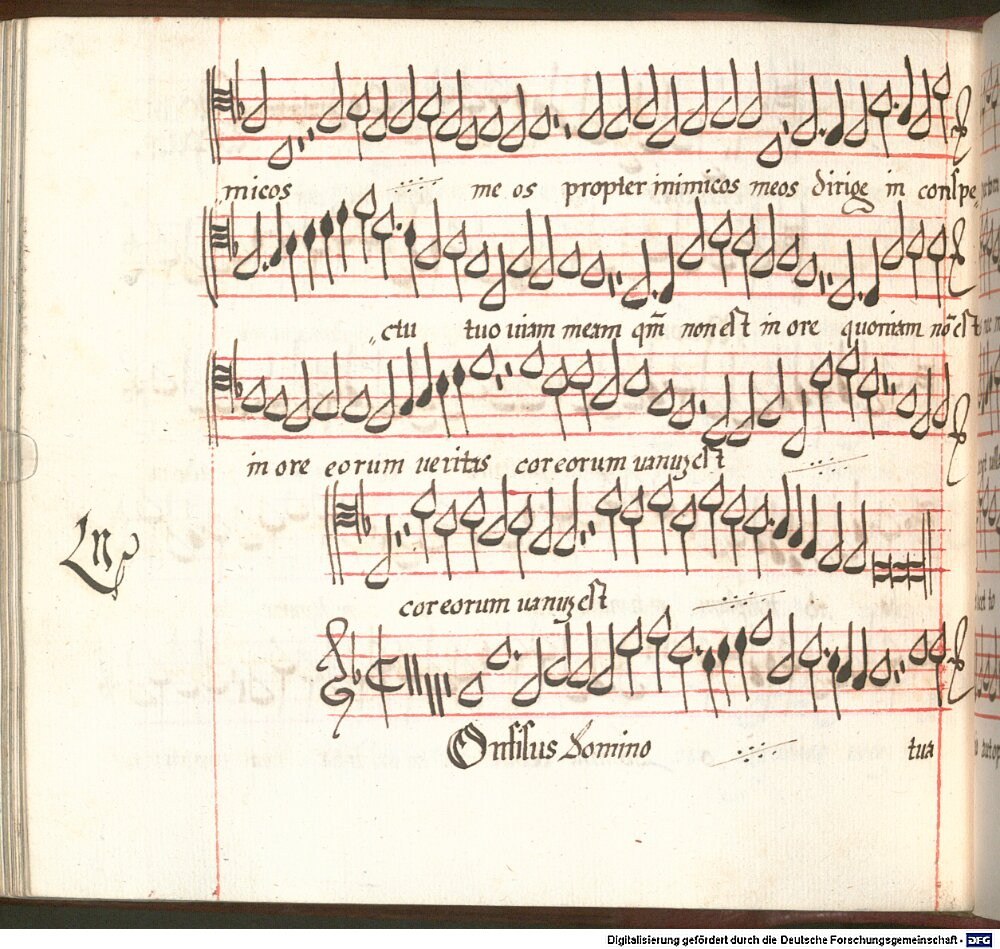 micos me os propter inimicos meos dirige in conspe
ctu tuo uiam meam qm̄ non est in ore quoniam nō est
in ore eorum ueritas cor eorum uanuȝ est
cor eorum uanuȝ est
Onsilus Domino tua
Digitalisierung gefördert durch die Deutsche Forschungsgemeinschaft - DFG